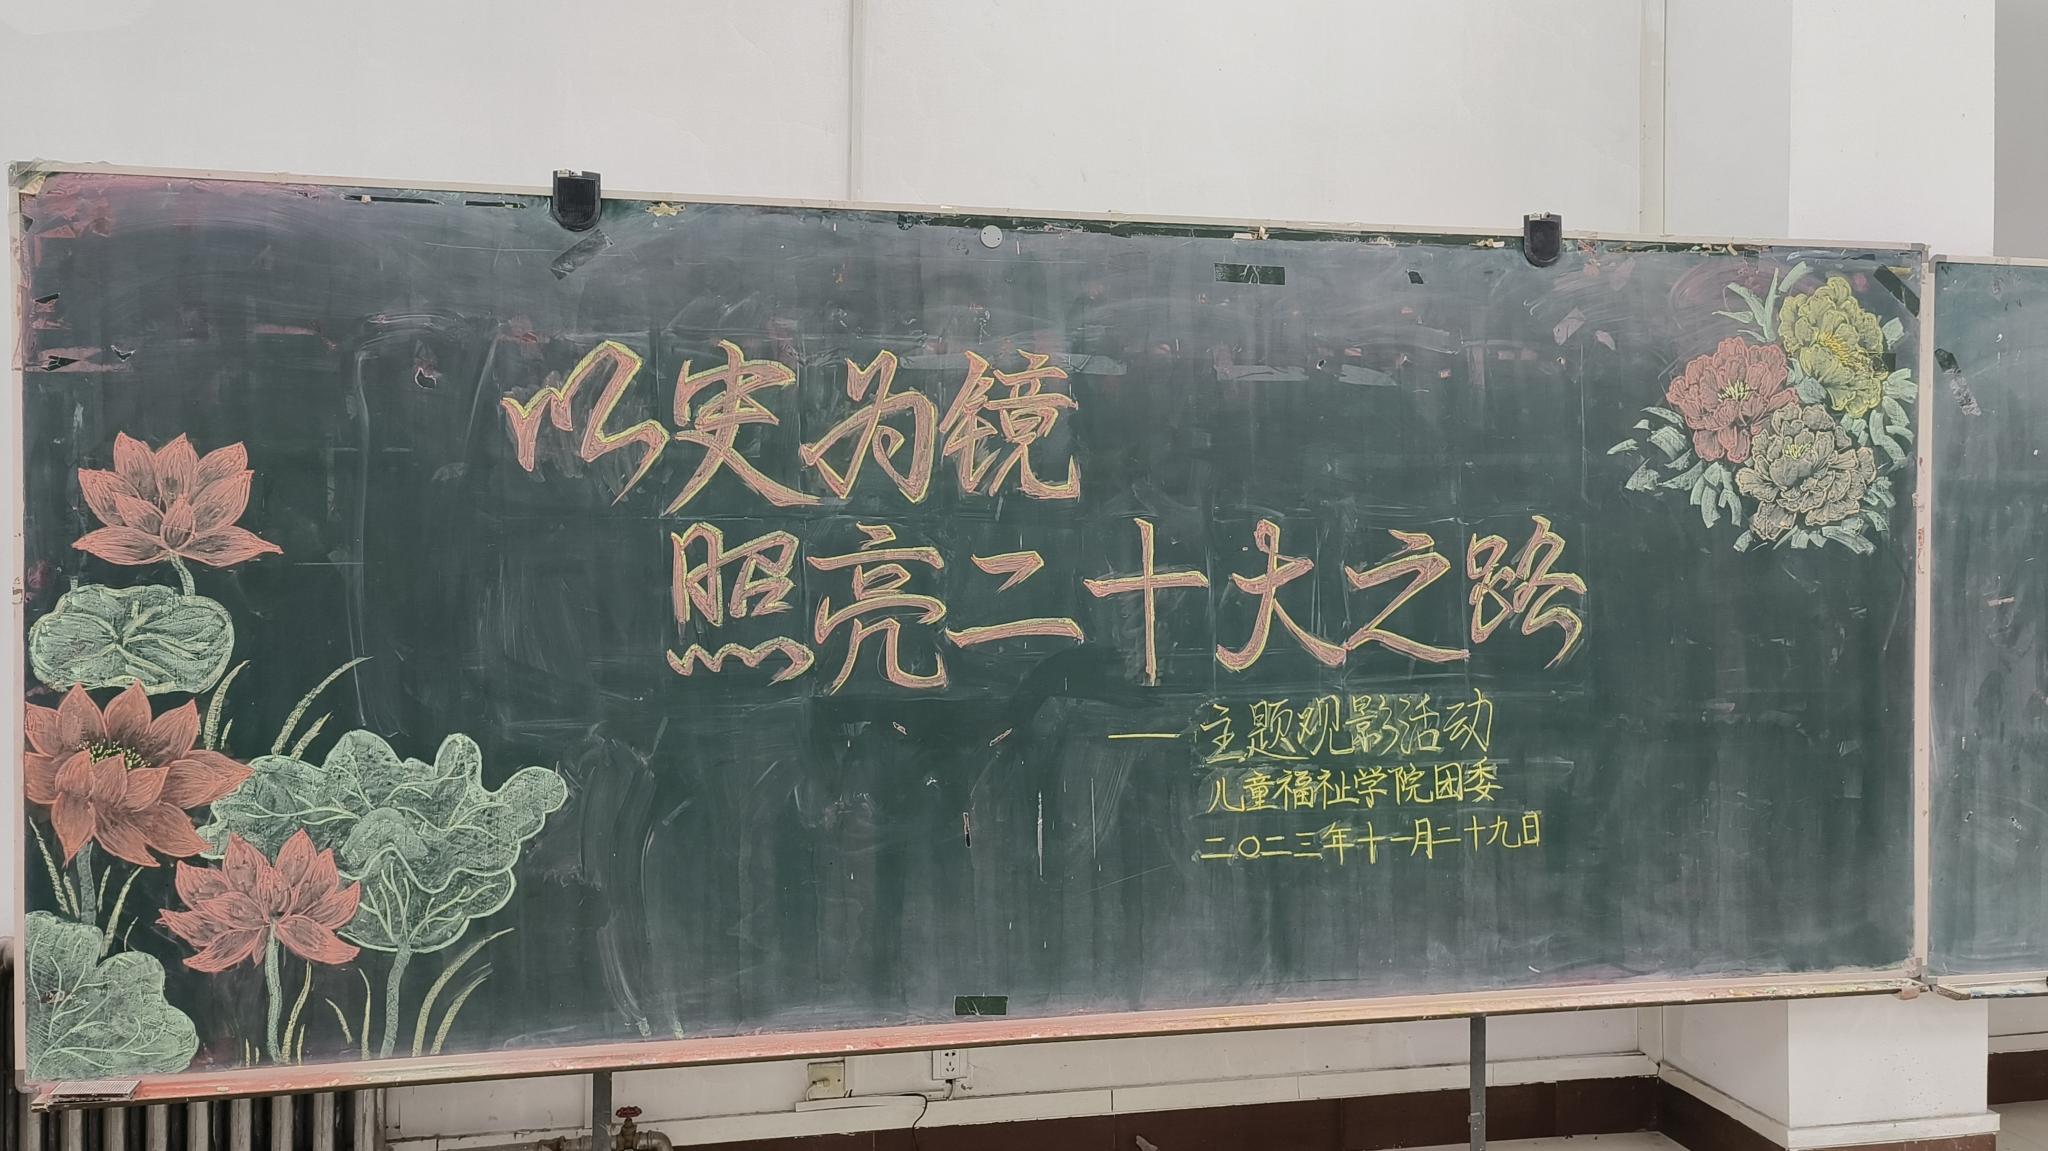 以史为镜
照亮二十大之路
——主题观影活动
儿童福祉学院团委
二〇二三年十一月二十九日